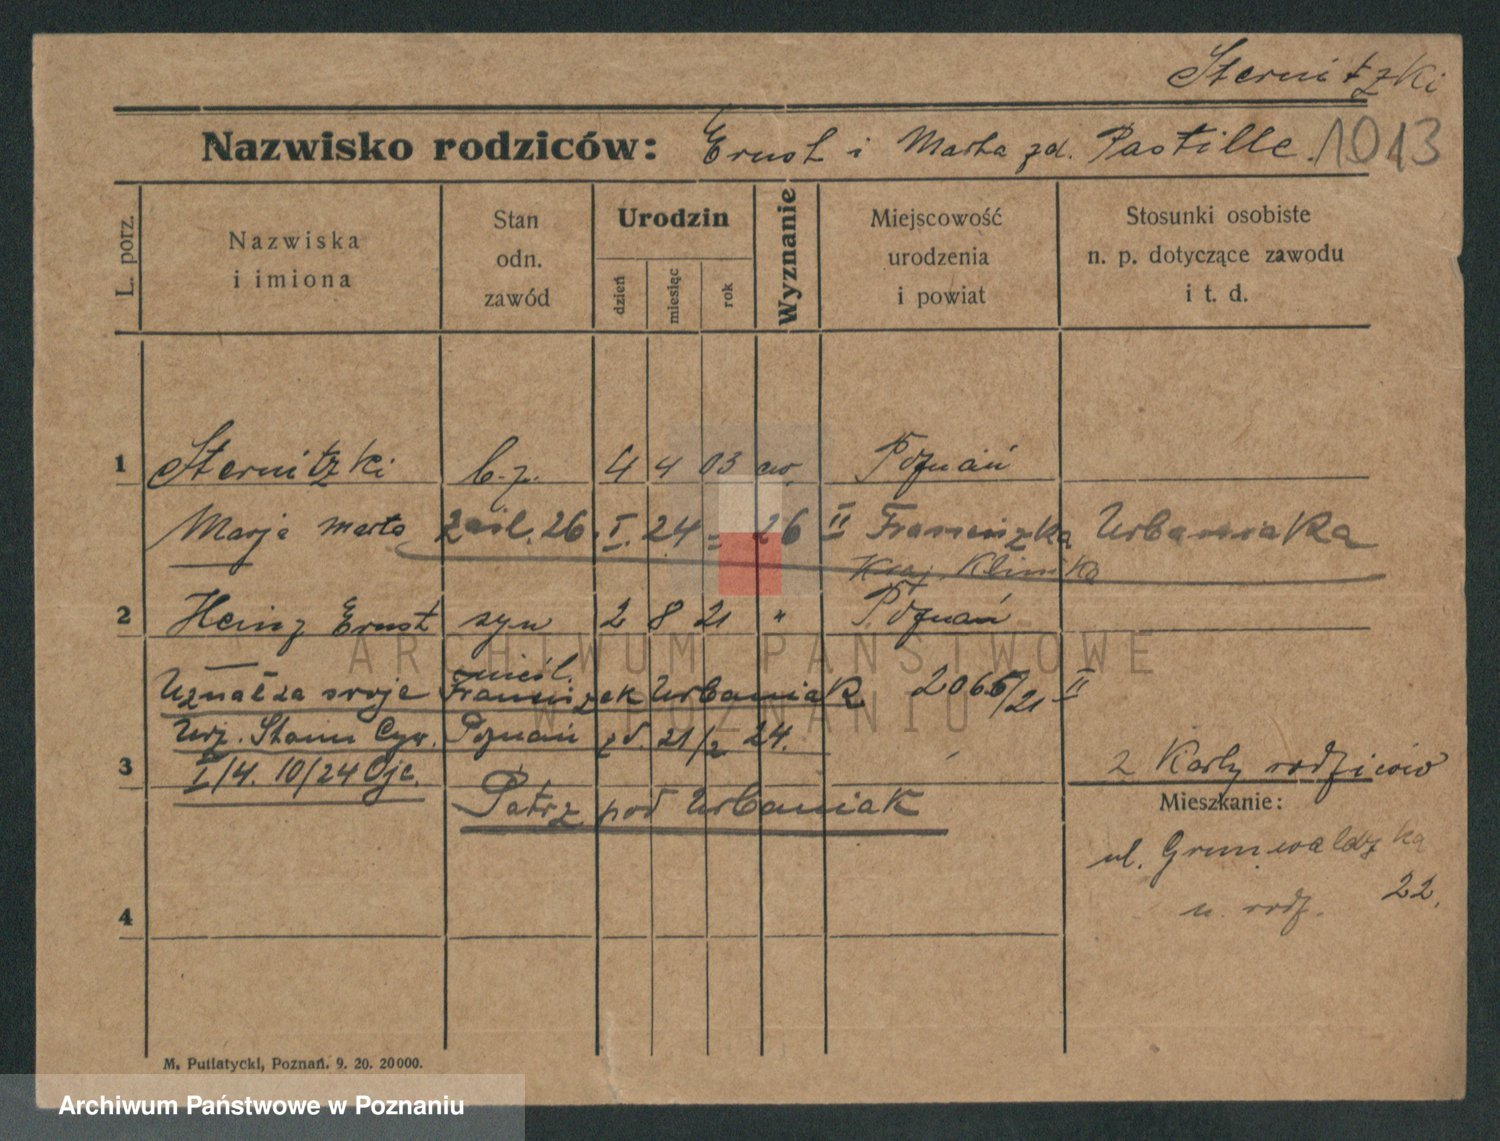 Sternitzki
Nazwisko rodziców: Ernst i Marta zd. Pastille. 1013
L. porz.
Nazwiska
i imiona
Stan
odn.
zawód
Urodzin
dzień
miesiąc
rok
Wyznanie
Miejscowość
urodzenia
i powiat
Stosunki osobiste
n. p. dotyczące zawodu
i t. d.
1 Sternitzki b. z. 4 4 03 ew. Poznań
Marja Marta zaśl. 26. I. 24 = 26 II Franciszka Urbaniaka
Kraj. Klinika
2 Heinz Ernst syn 2 8 21 " Poznań
nieśl.
Uznał za swoje Franciszek Urbaniak 2066/21 II
Urz. Stanu Cyw. Poznań zd. 21/2 24.
3 I/4. 10/24 Ojc.
2 Karty rodziców
Patrz pod Urbaniak
Mieszkanie:
ul. Grunwaldzka
22.
u. rodz.
4
M. Putiatycki, Poznań. 9. 20. 20000.
ARCHIWUM PAŃSTWOWE
W POZNANIU
Archiwum Państwowe w Poznaniu